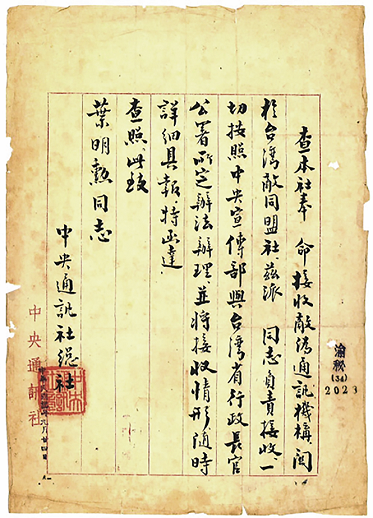 渝秘
(34)
2023
查本社奉 命接收敵偽通訊機構關
於台灣敵同盟社茲派 同志負責接收一
切按照中央宣傳部與台灣省行政長官
公署所定辦法辦理並將接收情形隨時
詳細具報特函達
查照此致
葉明勳同志
中央通訊社總社
九月廿四日
中央通訊社